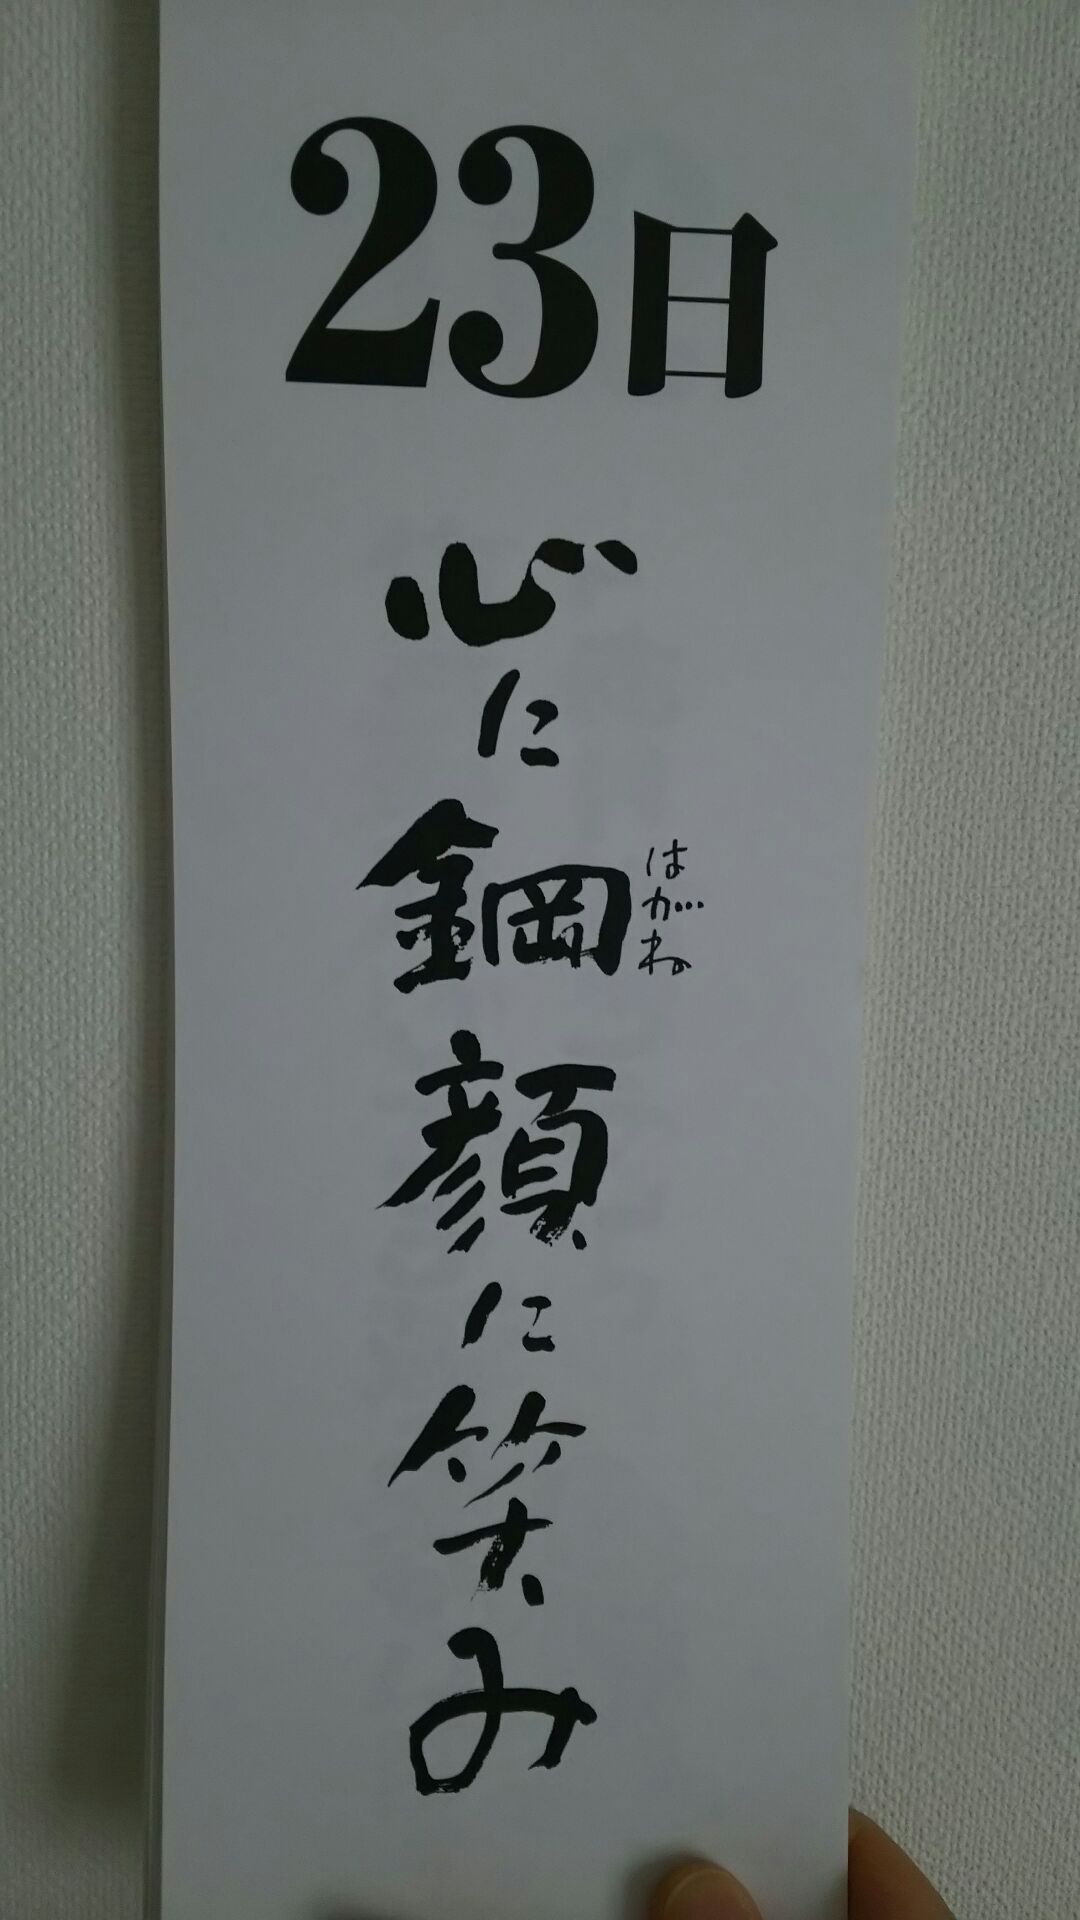 23日
心に鋼顔に笑み
はがね